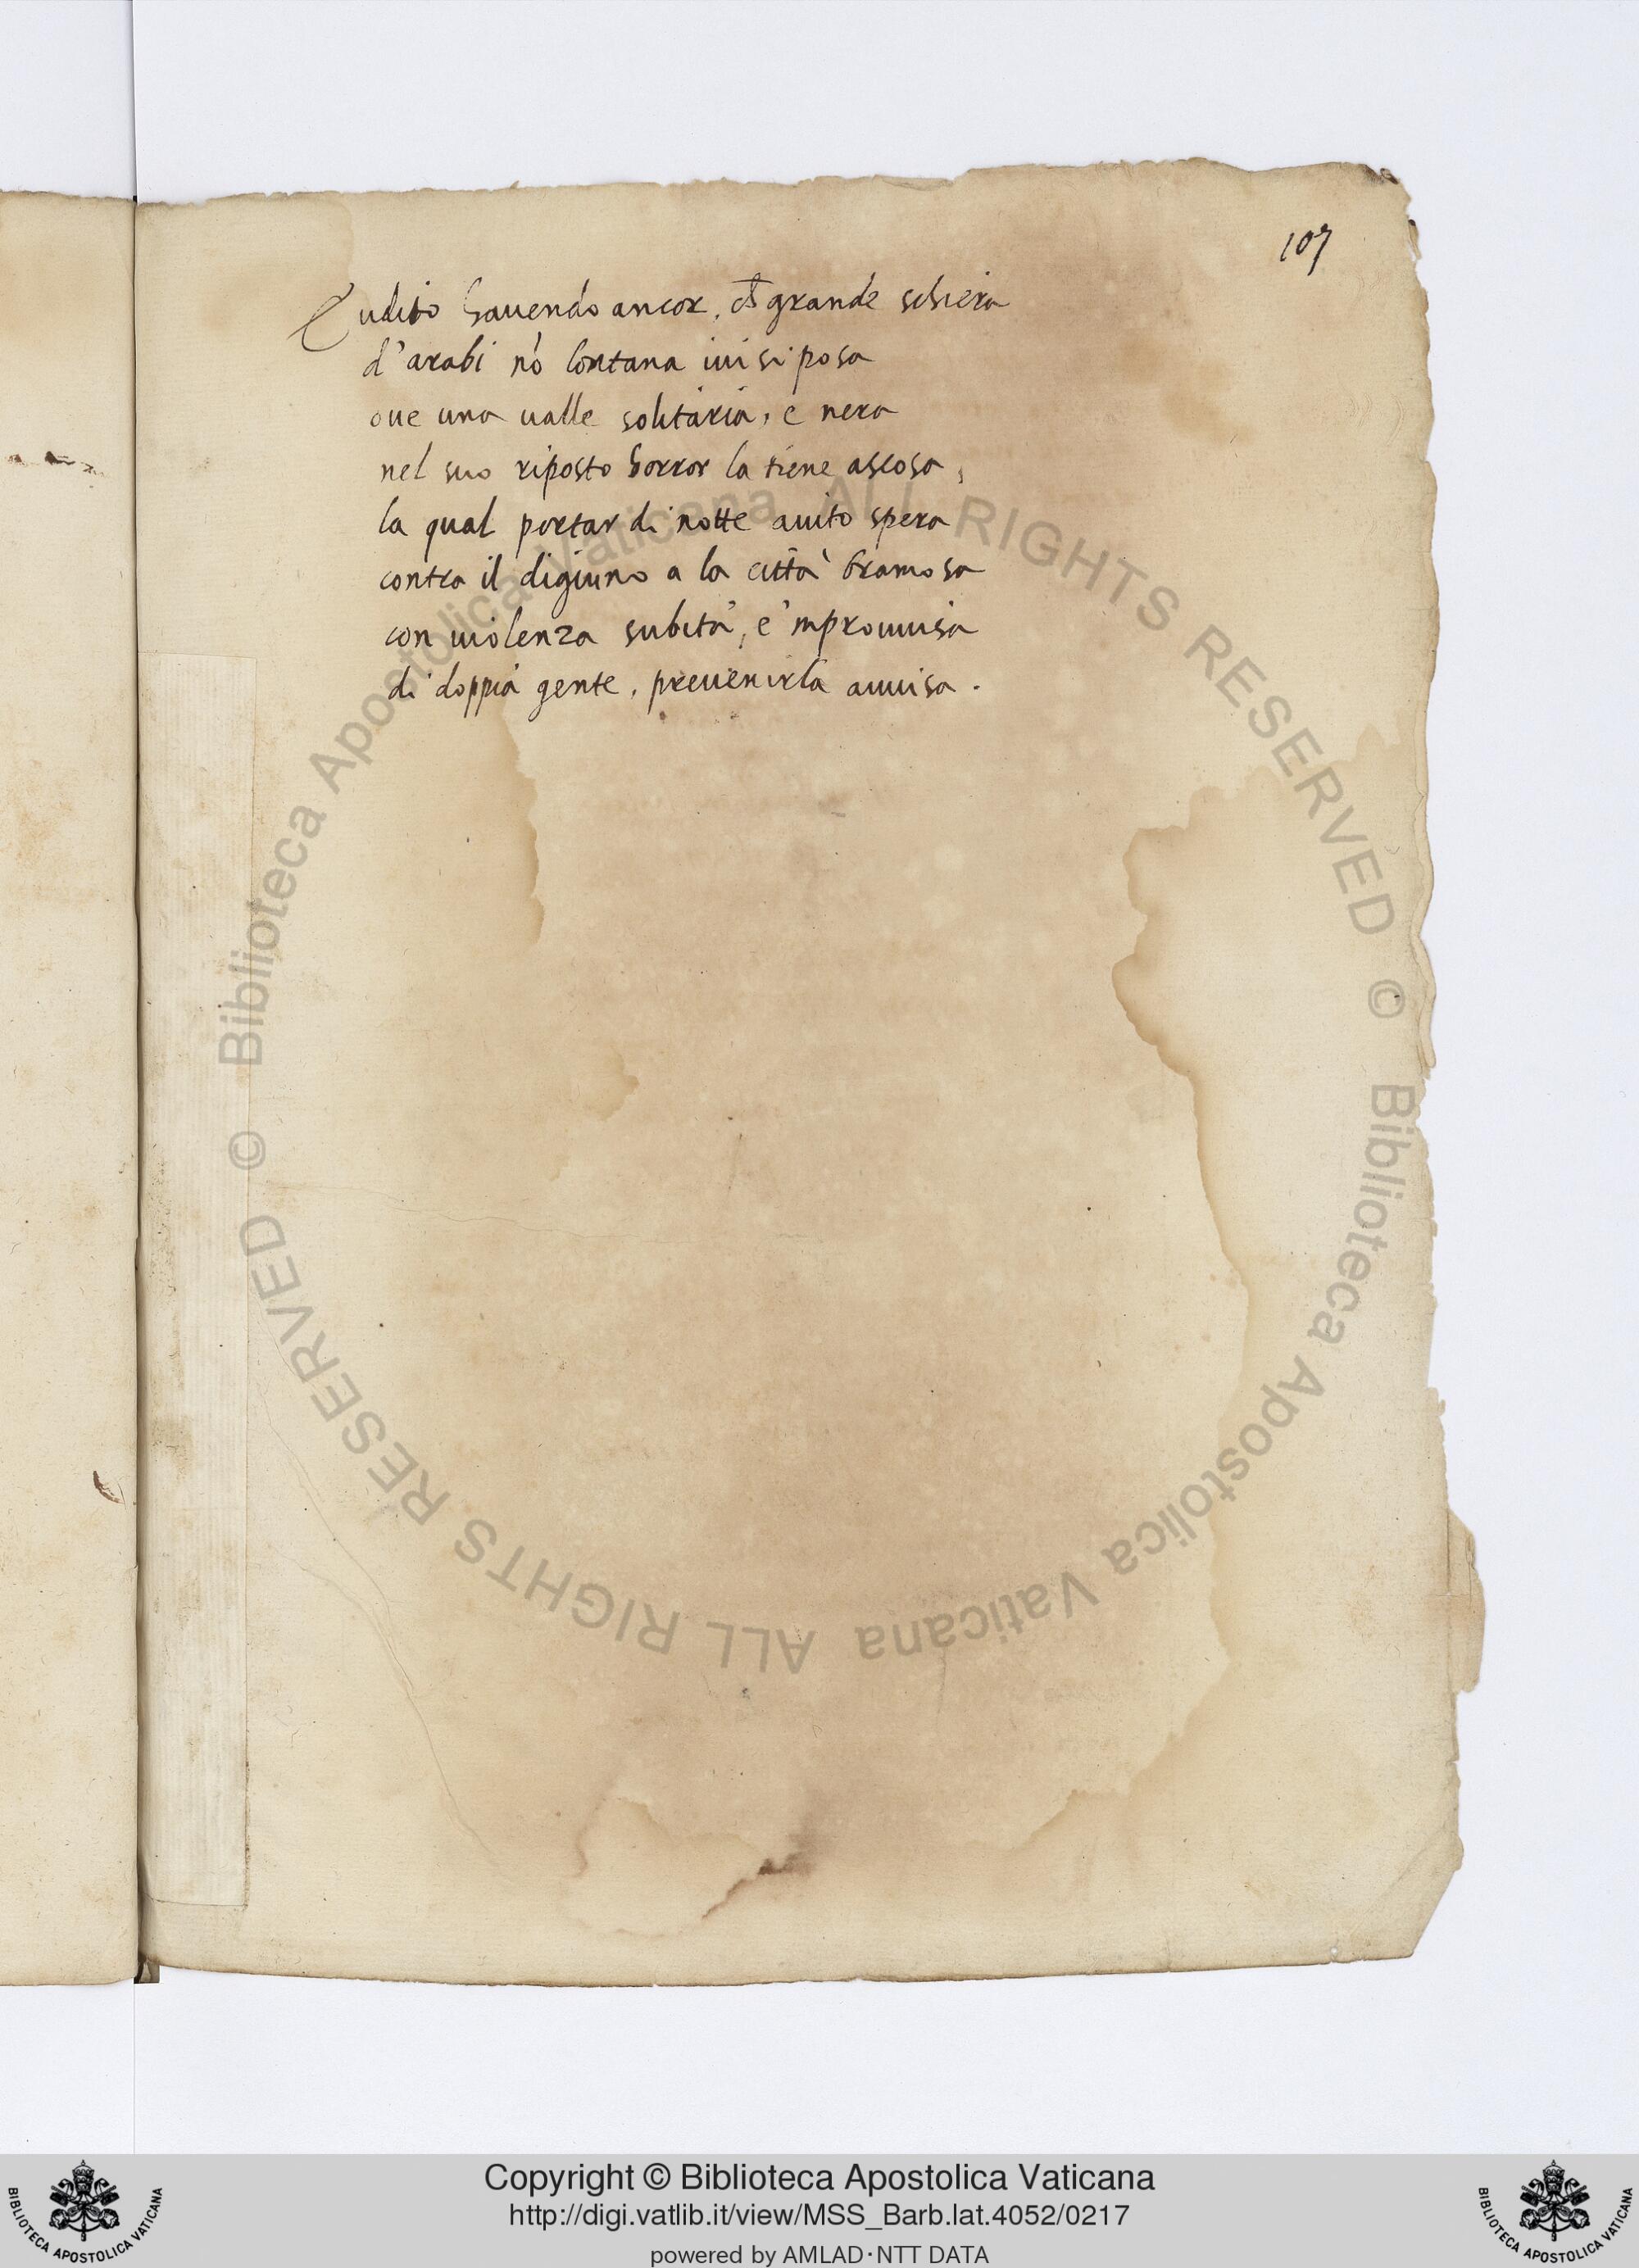 107
E udito hauendo ancor, ch̃ grande schiera
d'arabi nõ lontana iui si posa
oue una ualle solitaria, e nera
nel suo riposto horror la tiene ascosa,
la qual portar di notte aiuto spera
contra il digiuno a la città bramosa
con uiolenza subita, e 'mprouuisa
di doppia gente, preuenirla auuisa.
© Biblioteca Apostolica Vaticana ALL RIGHTS RESERVED © Biblioteca Apostolica Vaticana ALL RIGHTS RESERVED
Copyright © Biblioteca Apostolica Vaticana
http://digi.vatlib.it/view/MSS_Barb.lat.4052/0217
powered by AMLAD·NTT DATA
BIBLIOTECA APOSTOLICA VATICANA
BIBLIOTECA APOSTOLICA VATICANA